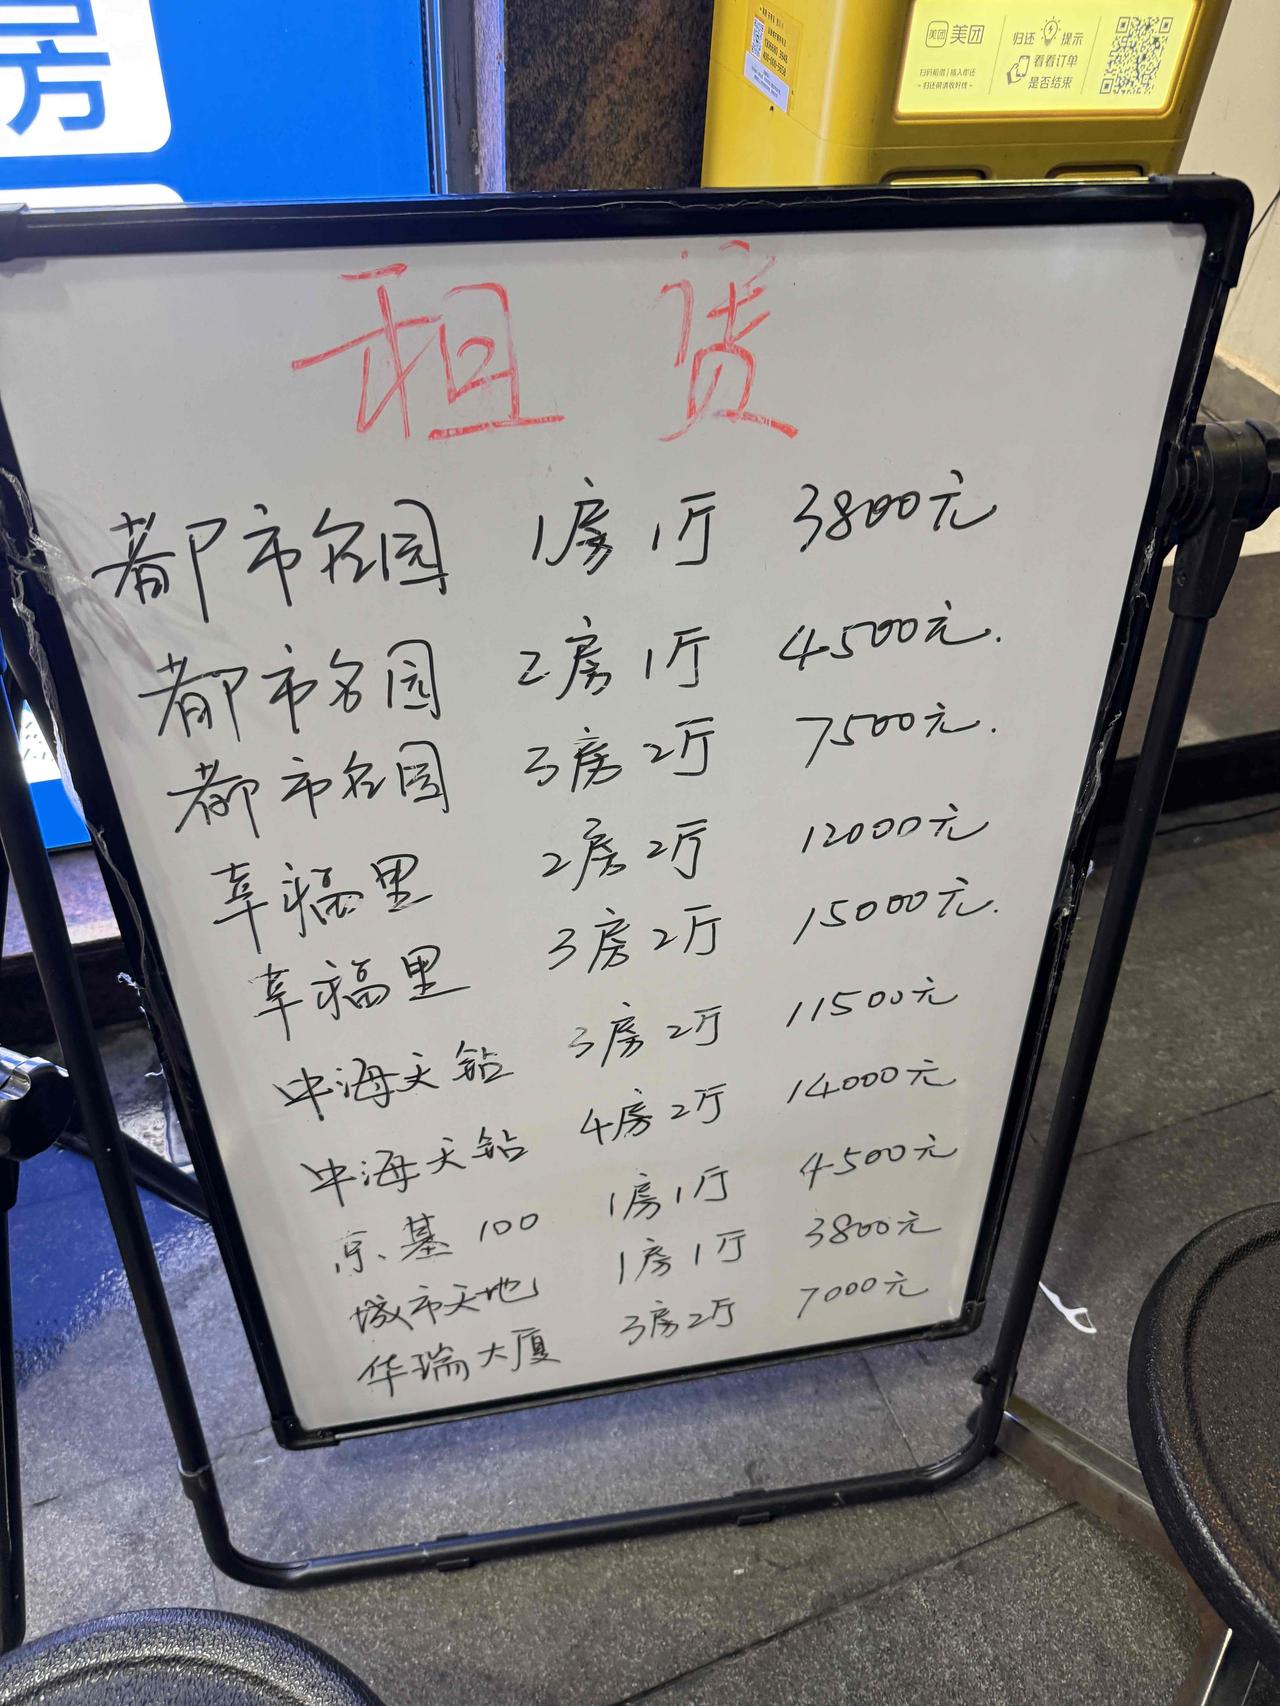 方
美团 美团
归还 提示
看看订单
是否结束
扫码租借|插入即还
-归还前请收好线-
租赁
都市名园 1房1厅 3800元
都市名园 2房1厅 4500元.
都市名园 3房2厅 7500元.
幸福里 2房2厅 12000元
幸福里 3房2厅 15000元.
中海天钻 3房2厅 11500元
中海天钻 4房2厅 14000元
京基100 1房1厅 4500元
城市天地 1房1厅 3800元
华瑞大厦 3房2厅 7000元